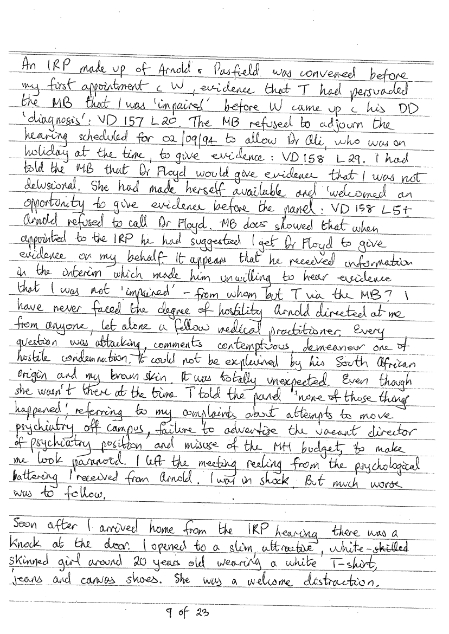 An IRP made up of Arnold & Pasfield was convened before
my first appointment c W, evidence that T had persuaded
the MB that I was 'impaired' before W came up c his DD
'diagnosis': VD 157 L20. The MB refused to adjourn the
hearing scheduled for 02/09/94 to allow Dr Ali, who was on
holiday at the time, to give evidence: VD158 L29. I had
told the MB that Dr Floyd would give evidence that I was not
delusional. She had made herself available and 'welcomed an
opportunity to give evidence before the panel: VD 158 L5+
Arnold refused to call Dr Floyd. MB docs showed that when
appointed to the IRP he had suggested I get Dr Floyd to give
evidence on my behalf. It appears that he received information
in the interim which made him unwilling to hear evidence
that I was not 'impaired' - from whom but T via the MB? I
have never faced the degree of hostility Arnold directed at me
from anyone, let alone a fellow medical practitioner. Every
question was attacking, comments contemptuous, demeanour one of
hostile condemnation. It could not be explained by his South African
origin and my brown skin. It was totally unexpected. Even though
she wasn't there at the time T told the panel 'none of those things
happened', referring to my complaints about attempts to move
psychiatry off campus, failure to advertise the vacant director
of psychiatry position and misuse of the MH budget, to make
me look paranoid. I left the meeting reeling from the psychological
battering I received from Arnold. I was in shock. But much worse
was to follow.
Soon after I arrived home from the IRP hearing there was a
knock at the door. I opened to a slim, attractive, white-skilled
skinned girl around 20 years old wearing a white T-shirt,
jeans and canvas shoes. She was a welcome distraction.
9 of 23